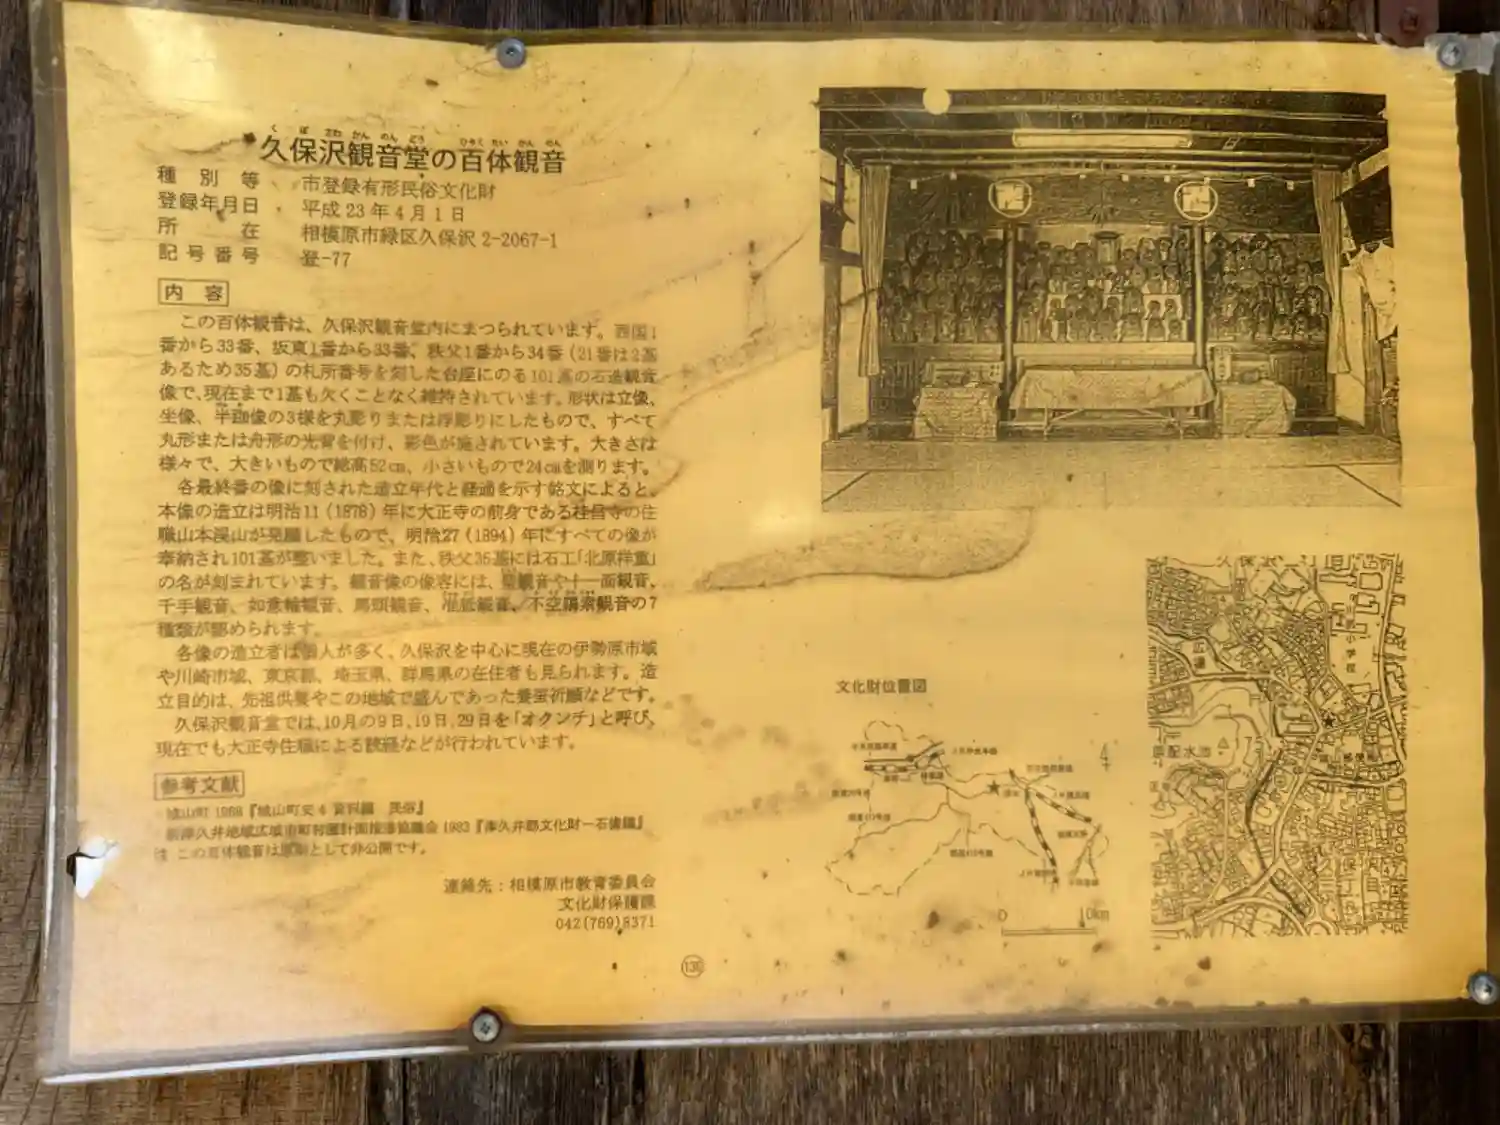 く ぼ さわ かん のん どう ひゃく たい かん のん
久保沢観音堂の百体観音
種別等 市登録有形民俗文化財
登録年月日 平成23年4月1日
所在 相模原市緑区久保沢2-2067-1
記号番号 登-77
内容
この百体観音は、久保沢観音堂内にまつられています。西国1
番から33番、坂東1番から33番、秩父1番から34番(21番は2基
あるため35基)の札所番号を刻した台座にのる101基の石造観音
像で、現在まで1基も欠くことなく維持されています。形状は立像、
坐像、半跏像の3様を丸彫りまたは浮彫りにしたもので、すべて
丸形または舟形の光背を付け、彩色が施されています。大きさは
様々で、大きいもので総高52㎝、小さいもので24㎝を測ります。
各最終番の像に刻された造立年代と経過を示す銘文によると、
本像の造立は明治11(1878)年に大正寺の前身である桂昌寺の住
職山本 山が発願したもので、明治27(1894)年にすべての像が
奉納され101基が整いました。また、秩父35基には石工「北原祥重」
の名が刻まれています。観音像の像容には、聖観音や十一面観音、
千手観音、如意輪観音、馬頭観音、准胝観音、不空羂索観音の7
種類が認められます。
各像の造立者は個人が多く、久保沢を中心に現在の伊勢原市域
や川崎市域、東京都、埼玉県、群馬県の在住者も見られます。造
立目的は、先祖供養やこの地域で盛んであった養蚕祈願などです。
久保沢観音堂では、10月の9日、19日、29日を「オクンチ」と呼び、
現在でも大正寺住職による読経などが行われています。
参考文献
城山町 1988『城山町史4 資料編 民俗』
県津久井地域広域市町村圏計画推進協議会 1983『津久井郡文化財-石像編』
注 この百体観音は原則として非公開です。
連絡先:相模原市教育委員会
文化財保護課
042(769)8371
130
文化財位置図
0 10km
小学校
広場
配水池